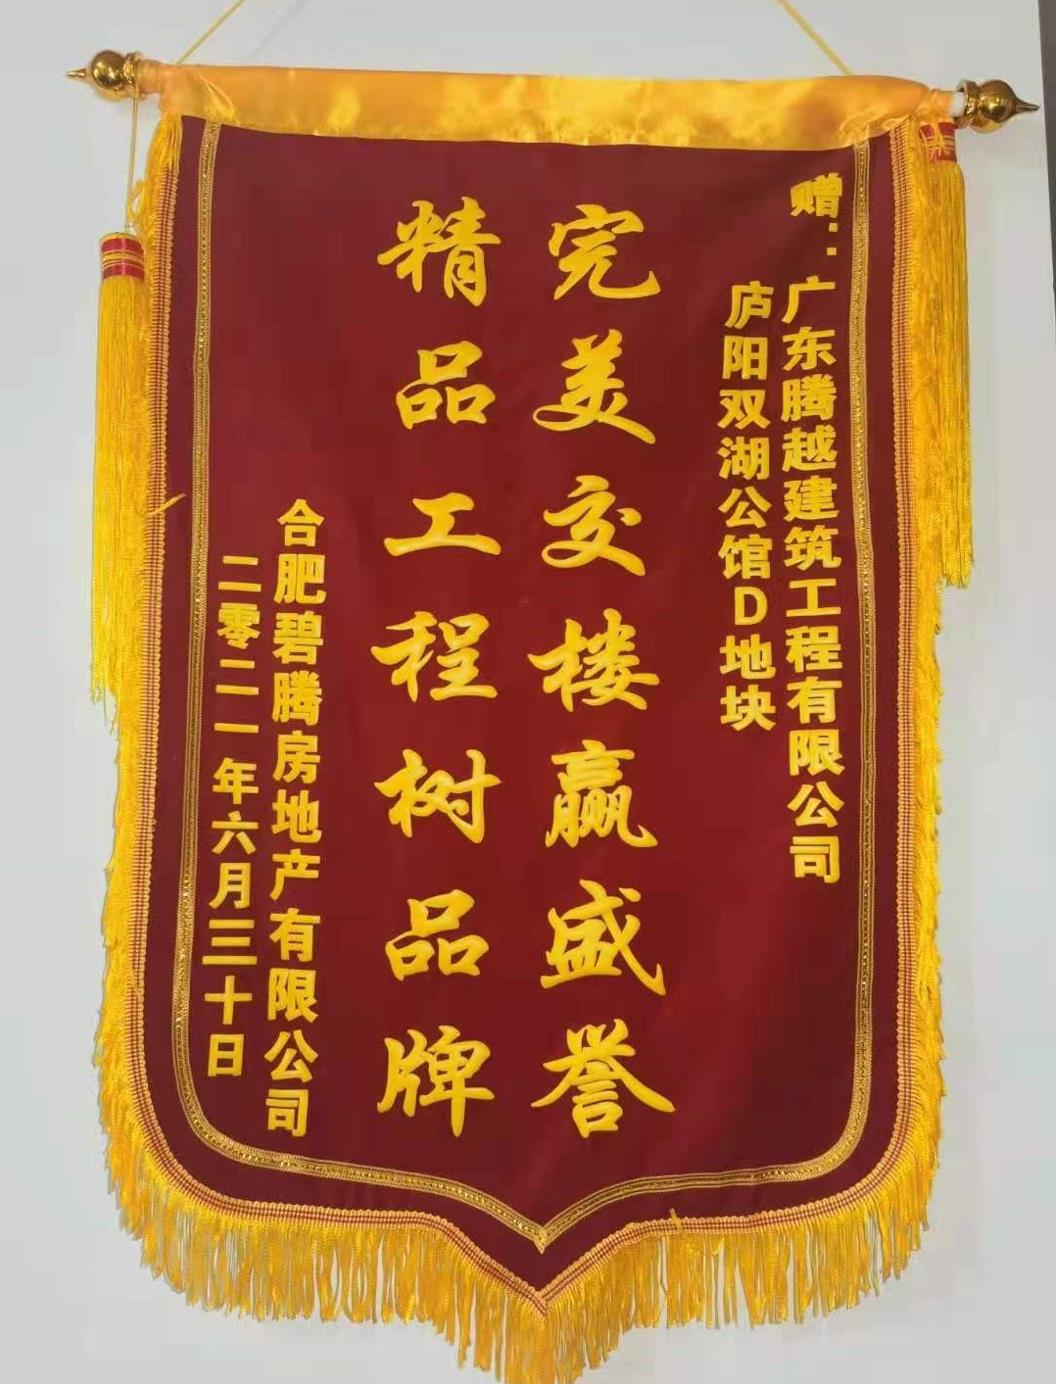 赠：广东腾越建筑工程有限公司
庐阳双湖公馆D地块
完美交楼赢盛誉
精品工程树品牌
合肥碧腾房地产有限公司
二零二一年六月三十日